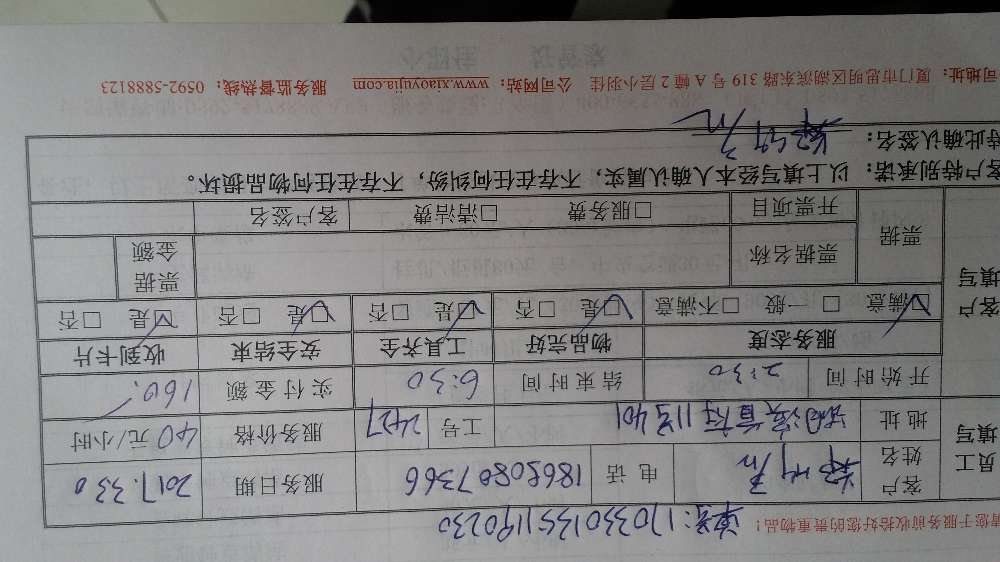 请您于服务前收拾好您的贵重物品！ 单号：170330135511190230
员工填写 客户姓名 电话 18650807366 服务日期 2017.3.30
地址 401 工号 2427 服务价格 40元/小时
开始时间 2:30 结束时间 6:30 实付金额 160
客户填写 服务态度 物品完好 工具齐全 安全结束 收到卡片
☑满意 □一般 □不满意 ☑是 □否 ☑是 □否 ☑是 □否 ☑是 □否
票据 票据名称 票据金额
开票项目 □服务费 □清洁费 客户签名
客户特别承诺：以上填写经本人确认属实，不存在任何纠纷，不存在任何物品损坏。
特此确认签名：
司地址：厦门市思明区湖滨东路 319 号 A 幢 2 层小羽佳 公司网站：www.xiaoyujia.com 服务监督热线：0592-5888123